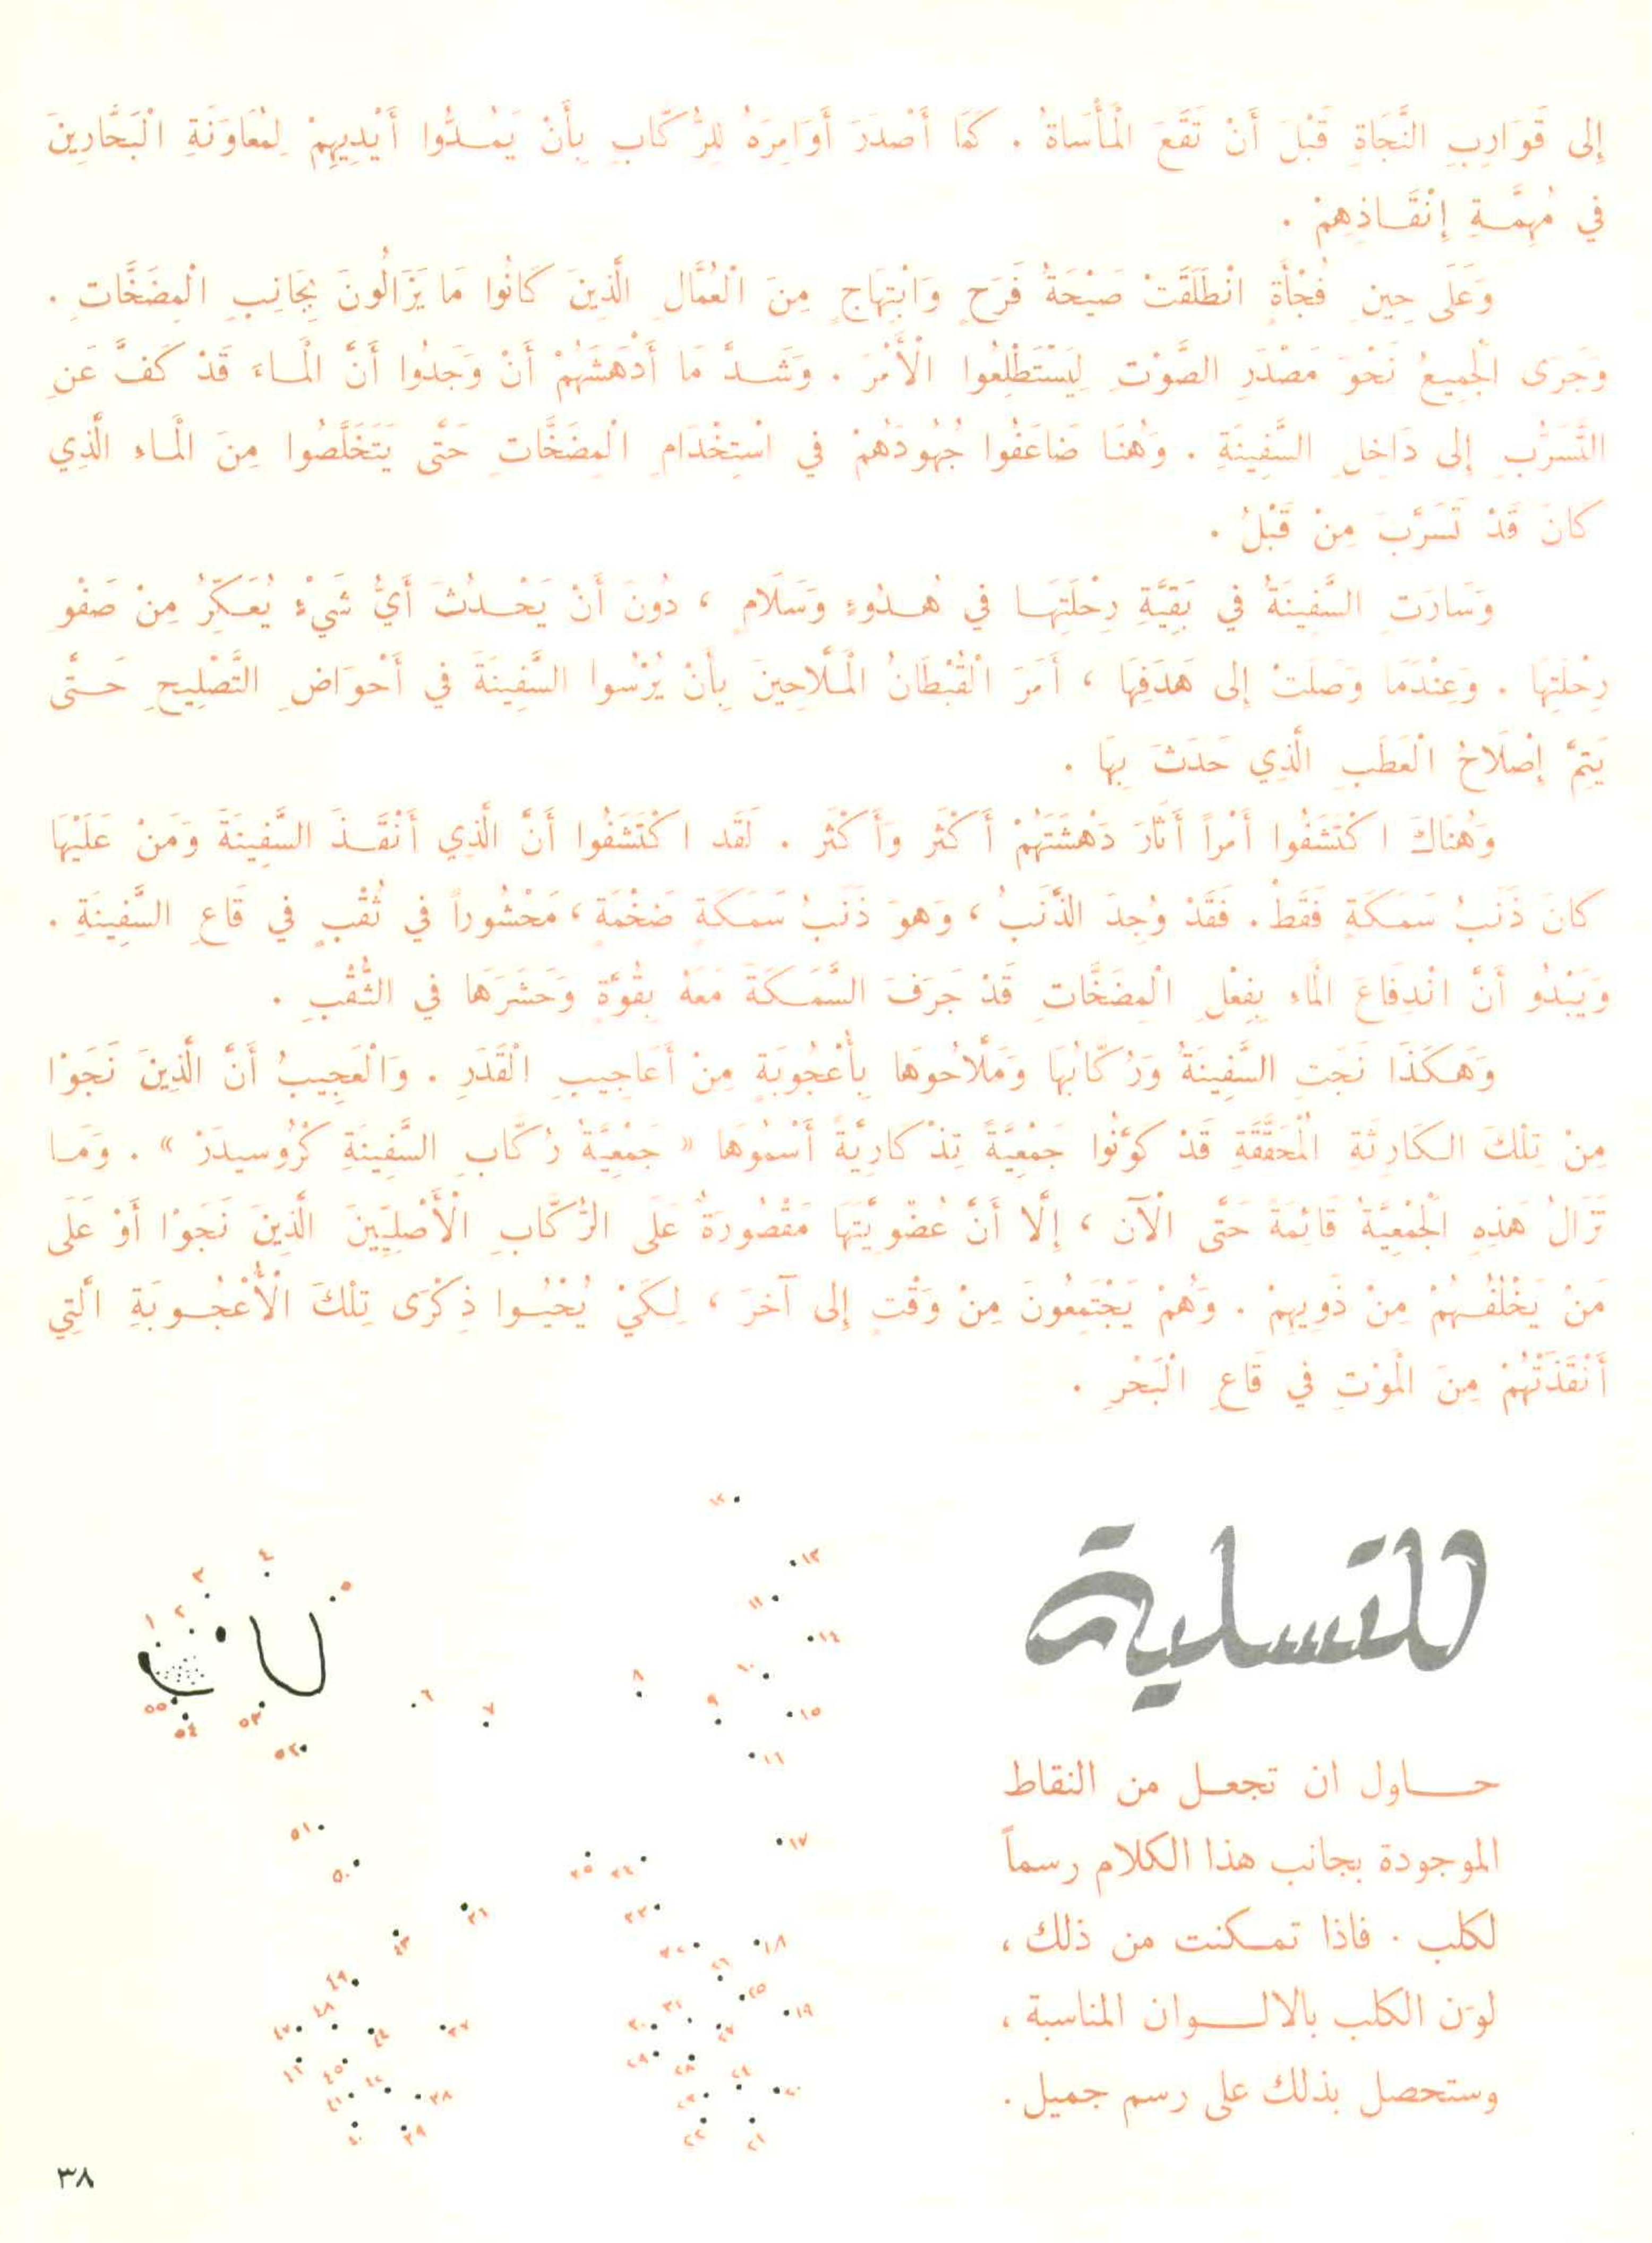 إِلى قَوَارِبِ النَّجَاةِ قَبْلَ أَنْ تَقَعَ الْمَأْسَاةُ . كَمَا أَصْدَرَ أَوَامِرَهُ لِلرُّكَّابِ بِأَنْ يَمُدُّوا أَيْدِيهِمْ لِمُعَاوَنَةِ الْبَحَّارِينَ
في مُهِمَّةِ إِنْقَاذِهِمْ .
وَعَلَى حِينِ فُجْأَةٍ انْطَلَقَتْ صَيْحَةُ فَرَحٍ وَابْتِهَاجٍ مِنَ الْعُمَّالِ الَّذِينَ كَانُوا مَا يَزَالُونَ بِجَانِبِ الْمِضَخَّاتِ .
وَجَرَى الْجَمِيعُ نَحْوَ مَصْدَرِ الصَّوْتِ لِيَسْتَطْلِعُوا الْأَمْرَ . وَشَدَّ مَا أَدْهَشَهُمْ أَنْ وَجَدُوا أَنَّ الْمَاءَ قَدْ كَفَّ عَنِ
التَّسَرُّبِ إِلى دَاخِلِ السَّفِينَةِ . وَهُنَا ضَاعَفُوا جُهُودَهُمْ في اسْتِخْدَامِ الْمِضَخَّاتِ حَتَّى يَتَخَلَّصُوا مِنَ الْمَاءِ الَّذِي
كَانَ قَدْ تَسَرَّبَ مِنْ قَبْلُ .
وَسَارَتِ السَّفِينَةُ في بَقِيَّةِ رِحْلَتِهَا في هُدُوءٍ وَسَلَامٍ ، دُونَ أَنْ يَحْدُثَ أَيُّ شَيْءٍ يُعَكِّرُ مِنْ صَفْوِ
رِحْلَتِهَا . وَعِنْدَمَا وَصَلَتْ إِلى هَدَفِهَا ، أَمَرَ الْقُبْطَانُ الْمَلَّاحِينَ بِأَنْ يُرْسُوا السَّفِينَةَ في أَحْوَاضِ التَّصْلِيحِ حَتَّى
يَتِمَّ إِصْلَاحُ الْعَطَبِ الَّذِي حَدَثَ بِهَا .
وَهُنَاكَ اكْتَشَفُوا أَمْراً أَثَارَ دَهْشَتَهُمْ أَكْثَر وَأَكْثَر . لَقَد اكْتَشَفُوا أَنَّ الَّذِي أَنْقَذَ السَّفِينَةَ وَمَنْ عَلَيْهَا
كَانَ ذَنَبُ سَمَكَةٍ فَقَطْ . فَقَدْ وُجِدَ الذَّنَبُ ، وَهوَ ذَنَبُ سَمَكَةٍ ضَخْمَةٍ ، مَحْشُوراً في ثُقْبٍ في قَاعِ السَّفِينَةِ .
وَيَبْدُو أَنَّ انْدِفَاعَ الْمَاءِ بِفِعْلِ الْمِضَخَّاتِ قَدْ جَرَفَ السَّمَكَةَ مَعَهُ بِقُوَّةٍ وَحَشَرَهَا في الثُّقْبِ .
وَهَكَذَا نَجَتِ السَّفِينَةُ وَرُكَّابُهَا وَمَلَّاحُوهَا بِأُعْجُوبَةٍ مِنْ أَعَاجِيبِ الْقَدَرِ . وَالْعَجِيبُ أَنَّ الَّذِينَ نَجَوْا
مِنْ تِلْكَ الكَارِثَةِ الْمُحَقَّقَةِ قَدْ كَوَّنُوا جَمْعِيَّةً تِذْكَارِيَّةً أَسْمُوهَا « جَمْعِيَّةُ رُكَّابِ السَّفِينَةِ كْرُوسِيدَرْ » . وَمَا
تَزَالُ هَذِهِ الْجَمْعِيَّةُ قَائِمَةً حَتَّى الْآنَ ، إِلَّا أَنَّ عُضْوِيَّتَهَا مَقْصُورَةٌ عَلَى الرُّكَّابِ الْأَصْلِيِّينَ الَّذِينَ نَجَوْا أَوْ عَلَى
مَنْ يَخْلُفُهُمْ مِنْ ذَوِيهِمْ . وَهُمْ يَجْتَمِعُونَ مِنْ وَقْتٍ إِلى آخَرَ ، لِكَيْ يُحْيُوا ذِكْرَى تِلْكَ الْأُعْجُوبَةِ الَّتِي
أَنْقَذَتْهُمْ مِنَ الْمَوْتِ في قَاعِ الْبَحْرِ .
للتسلية
حاول ان تجعل من النقاط
الموجودة بجانب هذا الكلام رسماً
لكلب . فاذا تمكنت من ذلك ،
لوّن الكلب بالالوان المناسبة ،
وستحصل بذلك على رسم جميل .
١
٢
٣
٤
٥
٦
٧
٨
٩
١٠
١١
١٢
١٣
١٤
١٥
١٦
١٧
١٨
١٩
٢٠
٢١
٢٢
٢٣
٢٤
٢٥
٢٦
٢٧
٢٨
٢٩
٣٠
٣١
٣٢
٣٣
٣٤
٣٥
٣٦
٣٧
٣٨
٣٩
٤٠
٤١
٤٢
٤٣
٤٤
٤٥
٤٦
٤٧
٤٨
٤٩
٥٠
٥١
٥٢
٥٣
٥٤
٥٥
٣٨